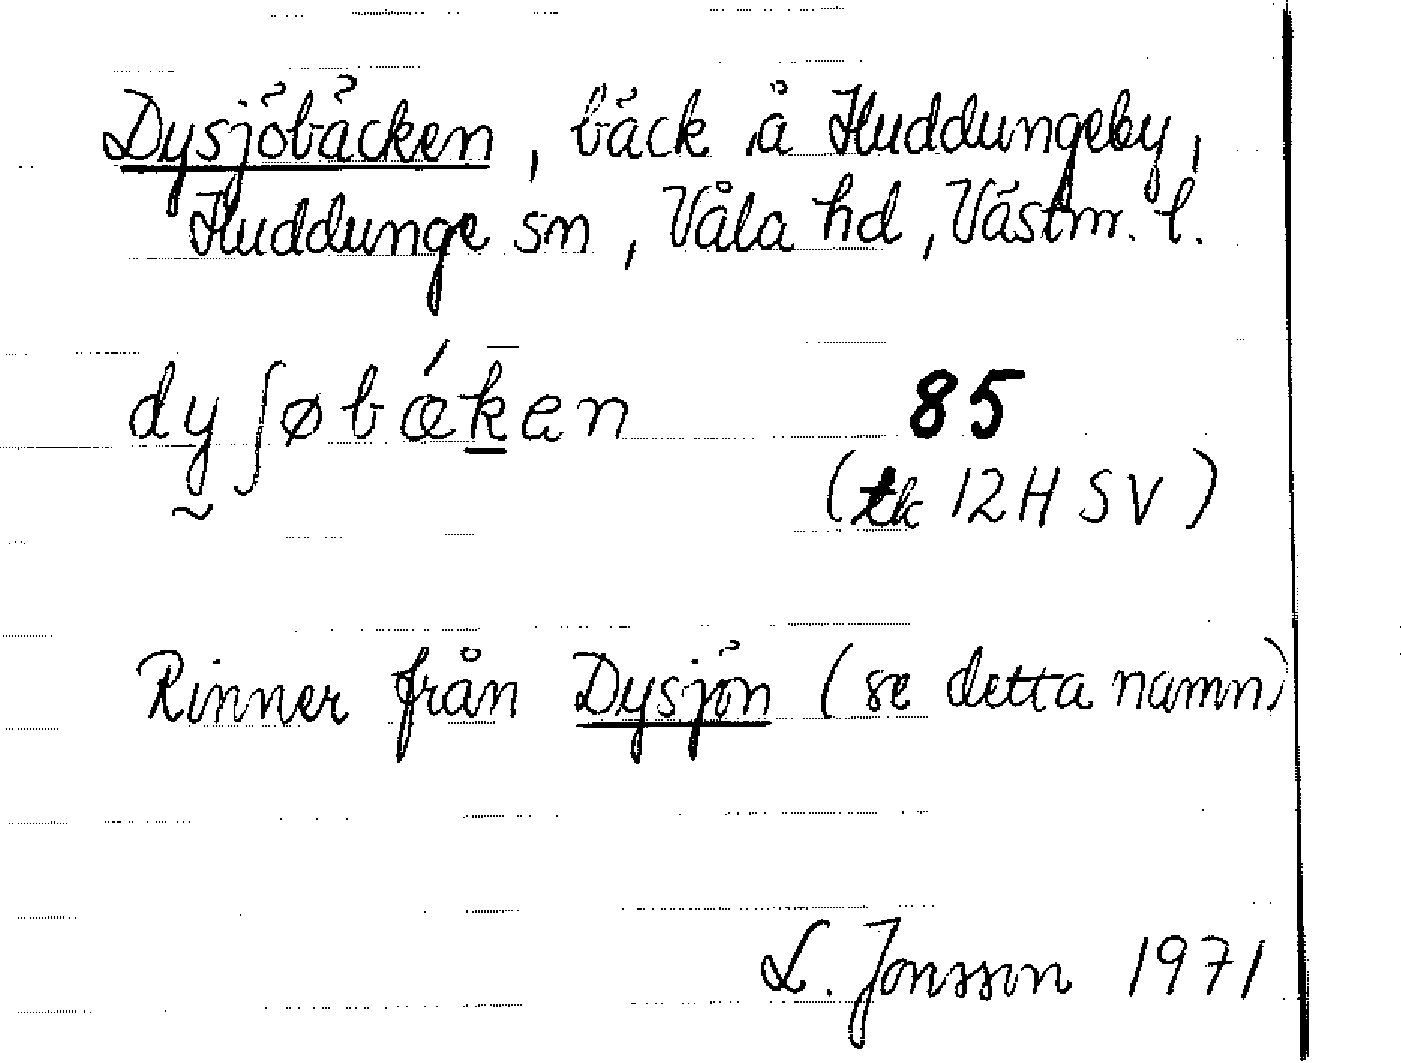 Dysjöbäcken, bäck å Huddungeby,
Huddunge sn, Våla hd, Västm. l.
dy̰ʃøbǽk̲̄en 85
(tk 12H SV)
Rinner från Dysjön (se detta namn)
L. Jonsson 1971